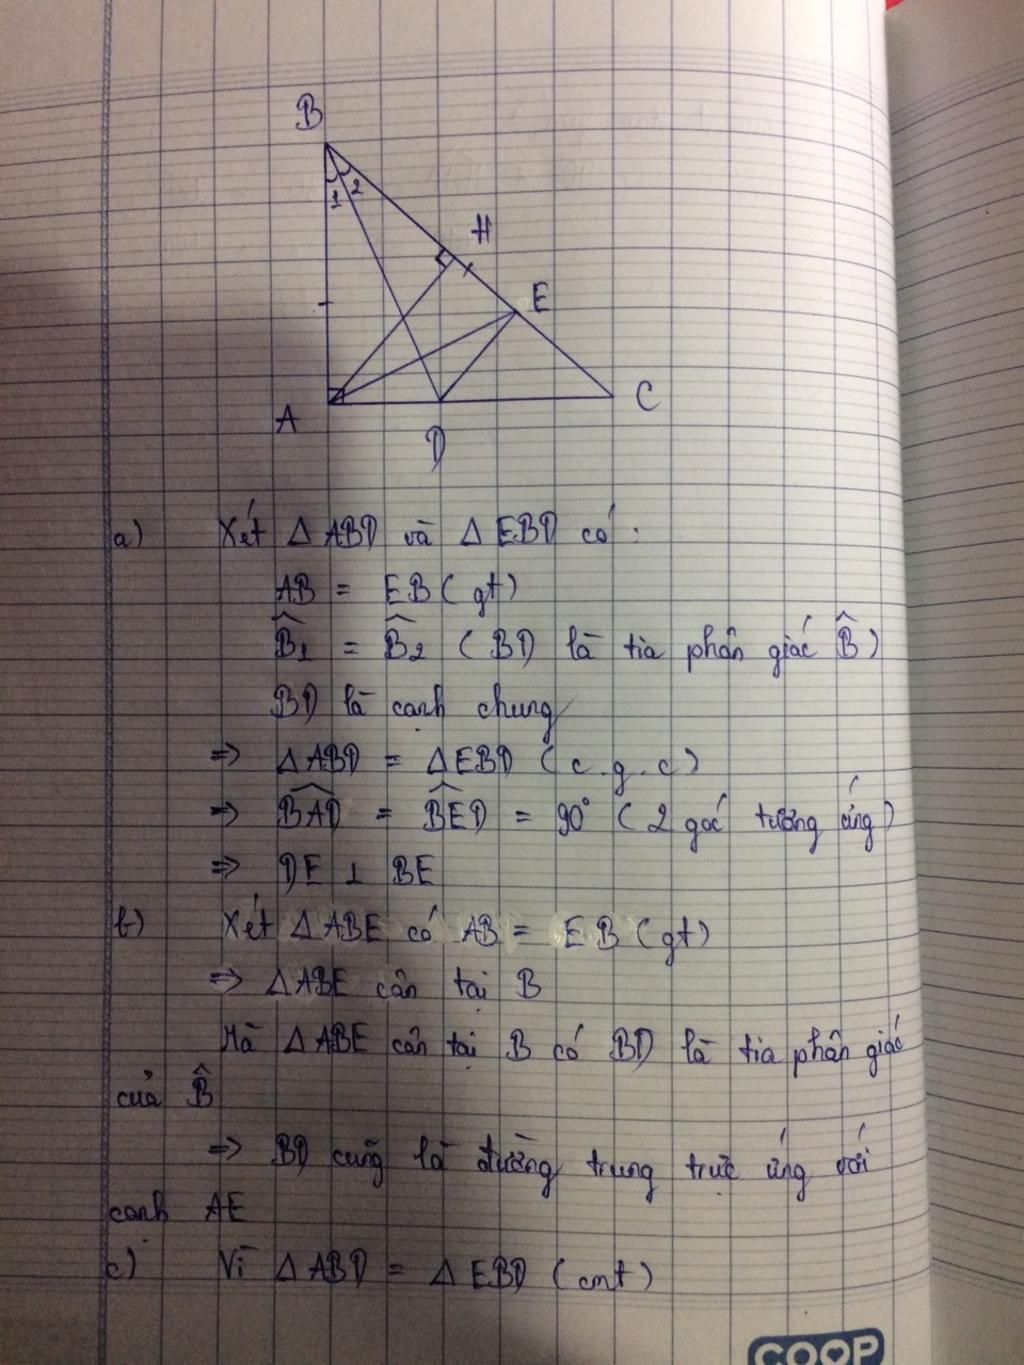 B
1 2
H
E
A
D
C
a) Xét Δ ABD và Δ EBD có :
AB = EB ( gt )
B̂₁ = B̂₂ ( BD là tia phân giác B̂ )
BD là cạnh chung
=> Δ ABD = Δ EBD ( c . g . c )
=> B͡AD = B͡ED = 90° ( 2 góc tương ứng )
=> DE ⊥ BE
b) Xét Δ ABE có AB = EB ( gt )
=> Δ ABE cân tại B
Mà Δ ABE cân tại B có BD là tia phân giác
của B̂
=> BD cũng là đường trung trực ứng với
cạnh AE
c) Vì Δ ABD = Δ EBD ( cmt )
COOP